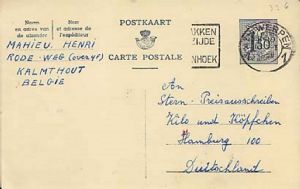 Naam en adres van de afzender
Nom et adresse de l'expéditeur
POSTKAART
CARTE POSTALE
MAHIEU. HENRI
RODE-WEG (over 49)
KALMTHOUT
BELGIE
AKKEN
ZIJDE
NHOEK
ANTWERPEN
An
Stern-Preisausschreiben
Kilo und Köpfchen
Hamburg 100
Deutschland